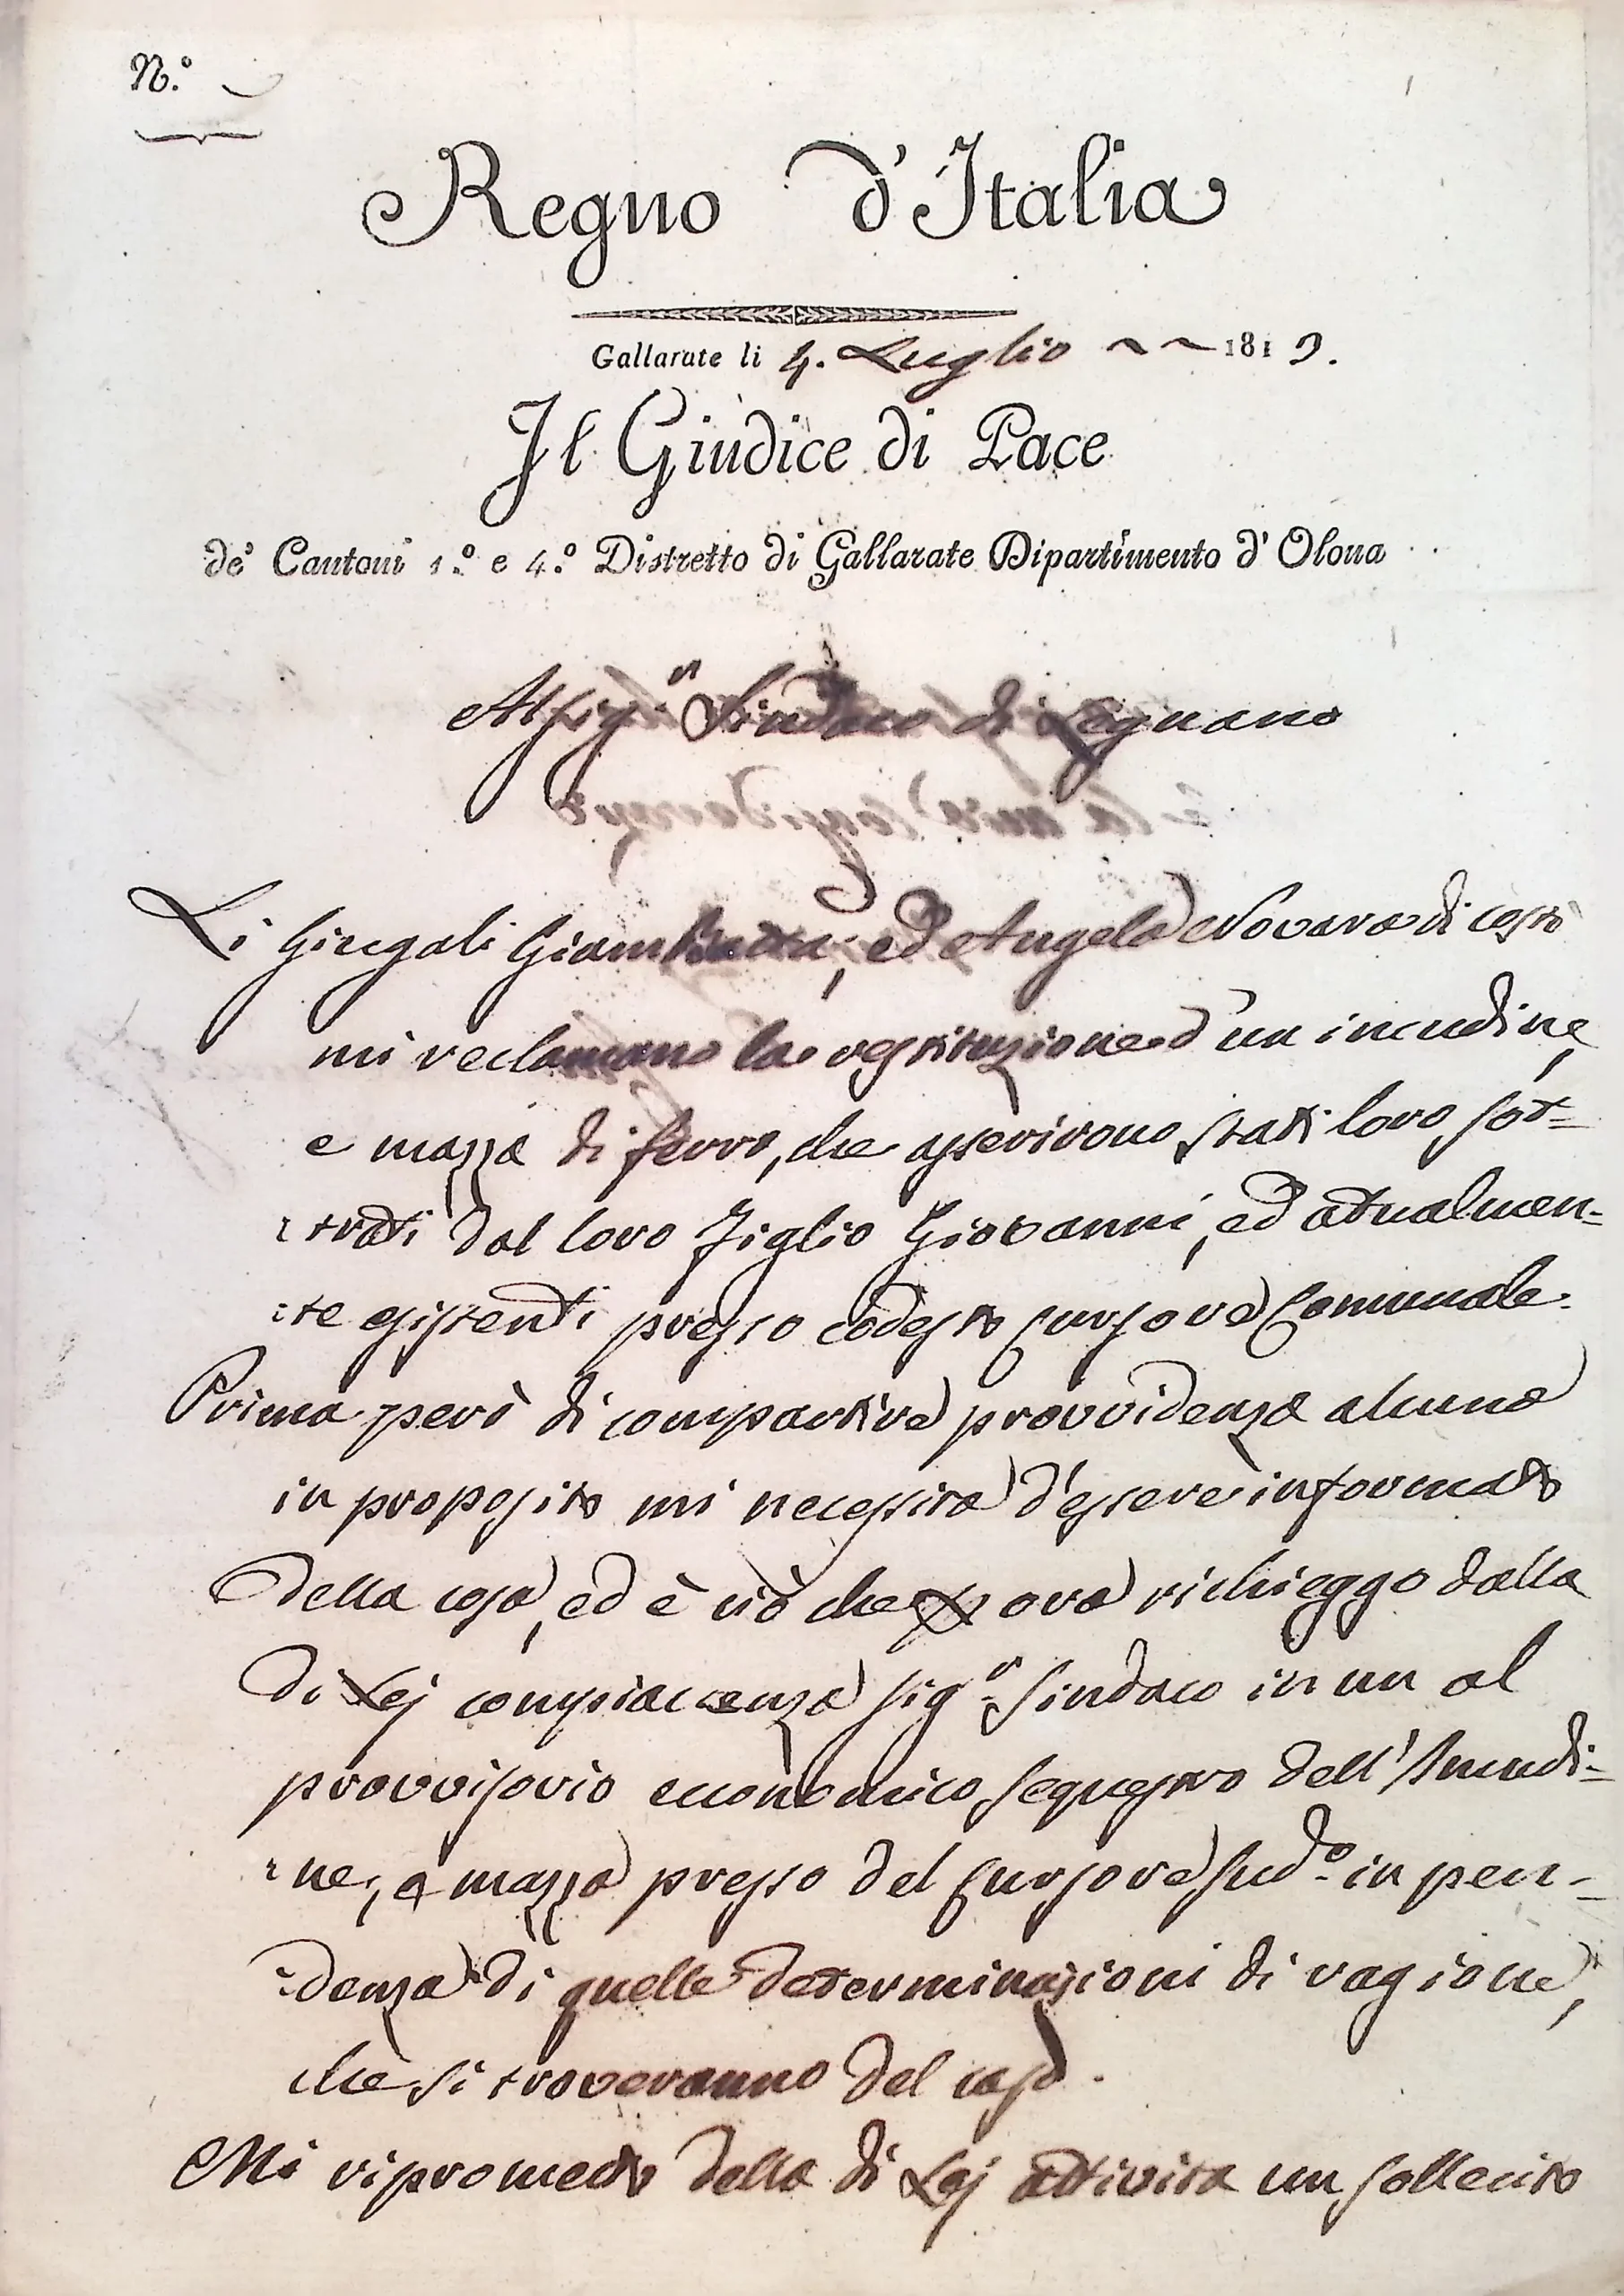 N.°
Regno d'Italia
Gallarate li 4. Luglio 1813.
Il Giudice di Pace
de' Cantoni 1.° e 4.° Distretto di Gallarate Dipartimento d'Olona
Al Sig.r Sindaco di Legnano
Li Giugali Giam Batta, ed Angela Novara di costì
mi reclamano la restituzione d'un incudine,
e mazza di ferro, che asserirono stati loro sot=
trati dal loro Figlio Giovanni, ed attualmen=
:te esistenti presso codesto Cursore Comunale.
Prima però di compartire provvidenza alcuna
in proposito mi necessita d'essere informato
della cosa, ed è ciò che ora richieggo dalla
di Lej compiaccenza Sig.r Sindaco in un al
provvisorio economico sequestro dell'Incudi=
:ne, e mazza presso del Cursore sud.° in pen=
:denza di quelle determinazioni di ragione,
che si troveranno del caso.
Mi riprometto della di Lej attività un sollecito